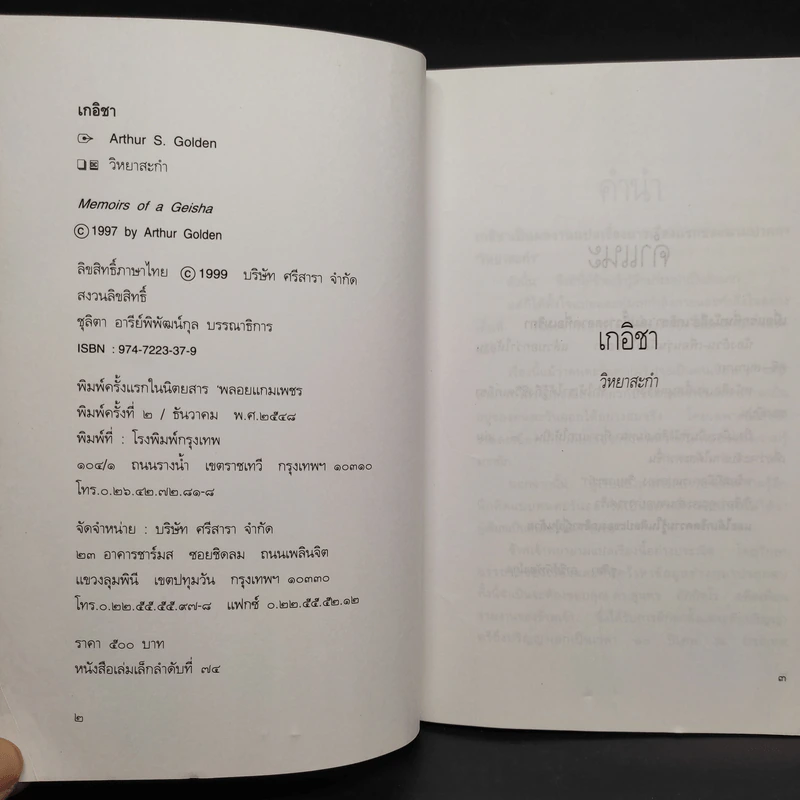 เกอิชา
Arthur S. Golden
วิทยาสะกำ
Memoirs of a Geisha
©1997 by Arthur Golden
ลิขสิทธิ์ภาษาไทย ©1999 บริษัท ศรีสารา จำกัด
สงวนลิขสิทธิ์
ชุลิตา อารีย์พิพัฒน์กุล บรรณาธิการ
ISBN : 974-7223-37-9
พิมพ์ครั้งแรกในนิตยสาร 'พลอยแกมเพชร
พิมพ์ครั้งที่ ๒ / ธันวาคม พ.ศ.๒๕๔๘
พิมพ์ที่ : โรงพิมพ์กรุงเทพ
๑๐๔/๑ ถนนรางน้ำ เขตราชเทวี กรุงเทพฯ ๑๐๓๑๐
โทร.๐.๒๖.๔๒.๗๒.๘๑-๘
จัดจำหน่าย : บริษัท ศรีสารา จำกัด
๒๓ อาคารชาร์มส ซอยชิดลม ถนนเพลินจิต
แขวงลุมพินี เขตปทุมวัน กรุงเทพฯ ๑๐๓๓๐
โทร.๐.๒๒.๕๕.๕๕.๙๗-๘ แฟกซ์ ๐.๒๒.๕๕.๕๒.๑๒
ราคา ๕๐๐ บาท
หนังสือเล่มเล็กลำดับที่ ๗๔
๒
เกอิชา
วิทยาสะกำ
๓